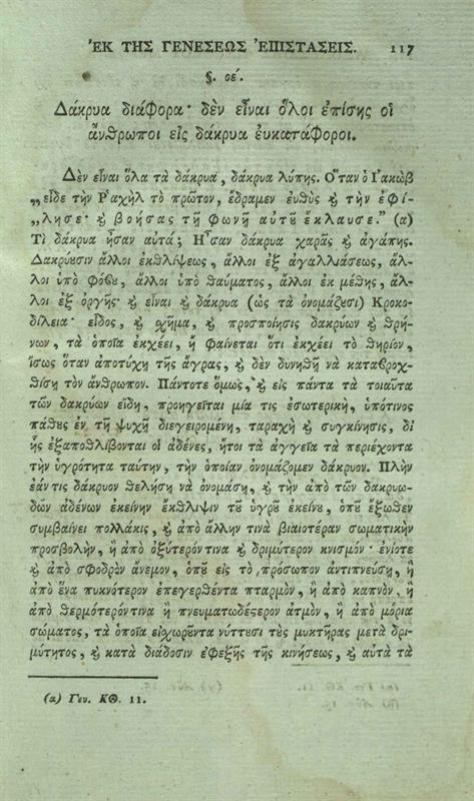 ἘΚ ΤΗΣ ΓΕΝΕΣΕΩΣ ἘΠΙΣΤΑΣΕΙΣ. 117
§. οέ.
Δάκρυα διάφορα· δὲν εἶναι ὅλοι ἐπίσης οἱ
ἄνθρωποι εἰς δάκρυα ἐυκατάφοροι.
Δὲν εἶναι ὅλα τὰ δάκρυα, δάκρυα λύπης. Ὅταν ὁ Ἰακὼβ
„εἶδε τὴν Ῥαχὴλ τὸ πρῶτον, ἔδραμεν ἐυθὺς ϗ τὴν ἐφί-
„λησε· ϗ βοήσας τῇ φωνῇ αὐτȣ͂ ἔκλαυσε.” (α)
Τί δάκρυα ἦσαν αὐτά; Ἦσαν δάκρυα χαρᾶς ϗ ἀγάπης.
Δακρύȣσιν ἄλλοι ἐκθλίψεως, ἄλλοι ἐξ ἀγαλλιάσεως, ἄλ-
λοι ὑπὸ φόβȣ, ἄλλοι ὑπὸ θαύματος, ἄλλοι ἐκ μέθης, ἄλ-
λοι ἐξ ὀργῆς· ϗ εἶναι ϗ δάκρυα (ὡς τὰ ὀνομάζȣσι) Κροκο-
δίλεια· εἶδος, ϗ σχῆμα, ϗ προσποίησις δακρύων ϗ θρή-
νων, τὰ ὁποῖα ἐκχέει, ἢ φαίνεται ὅτι ἐκχέει τὸ θηρίον,
ἴσως ὅταν ἀποτύχῃ τῆς ἄγρας, ϗ δὲν δυνηθῇ νὰ καταβροχ-
θίσῃ τὸν ἄνθρωπον. Πάντοτε ὅμως, ϗ εἰς πάντα τὰ τοιαῦτα
τῶν δακρύων εἴδη, προηγεῖται μία τις ἐσωτερικὴ, ὑπότινος
πάθȣς ἐν τῇ ψυχῇ διεγειρομένη, ταραχὴ ϗ συγκίνησις, δἰ
ἧς ἐξαποθλίβονται οἱ ἀδένες, ἤτοι τὰ ἀγγεῖα τὰ περιέχοντα
τὴν ὑγρότητα ταύτην, τὴν ὁποίαν ὀνομάζομεν δάκρυον. Πλὴν
ἐάν τις δάκρυον θελήσῃ νὰ ὀνομάσῃ, ϗ τὴν ἀπὸ τῶν δακρυω-
δῶν ἀδένων ἐκείνην ἔκθλιψιν τȣ͂ ὑγρȣ͂ ἐκείνȣ, ὁπȣ͂ ἔξωθεν
συμβαίνει πολλάκις, ϗ ἀπὸ ἄλλην τινὰ βιαιοτέραν σωματικὴν
προσβολὴν, ἢ ἀπὸ ὀξύτερόν τινα ϗ δριμύτερον κνισμόν· ἐνίοτε
ϗ ἀπὸ σφοδρὸν ἄνεμον, ὁπȣ͂ εἰς τὸ πρόσωπον ἀντιπνεύσῃ, ἢ
ἀπὸ ἕνα πυκνότερον ἐπεγερθέντα πταρμὸν, ἢ ἀπὸ καπνὸν, ἢ
ἀπὸ θερμότερόν τινα ἢ πνευματωδέϛερον ἀτμὸν, ἢ ἀπὸ μόρια
σώματος, τὰ ὁποῖα εἰσχωρῶντα νύττȣσι τȣ̀ς μυκτῆρας μετὰ δρι-
μύτητος, ϗ κατὰ διάδοσιν ἐφεξῆς τῆς κινήσεως, ϗ αὐτὰ τὰ
(α) Γεν. ΚΘ. 11.